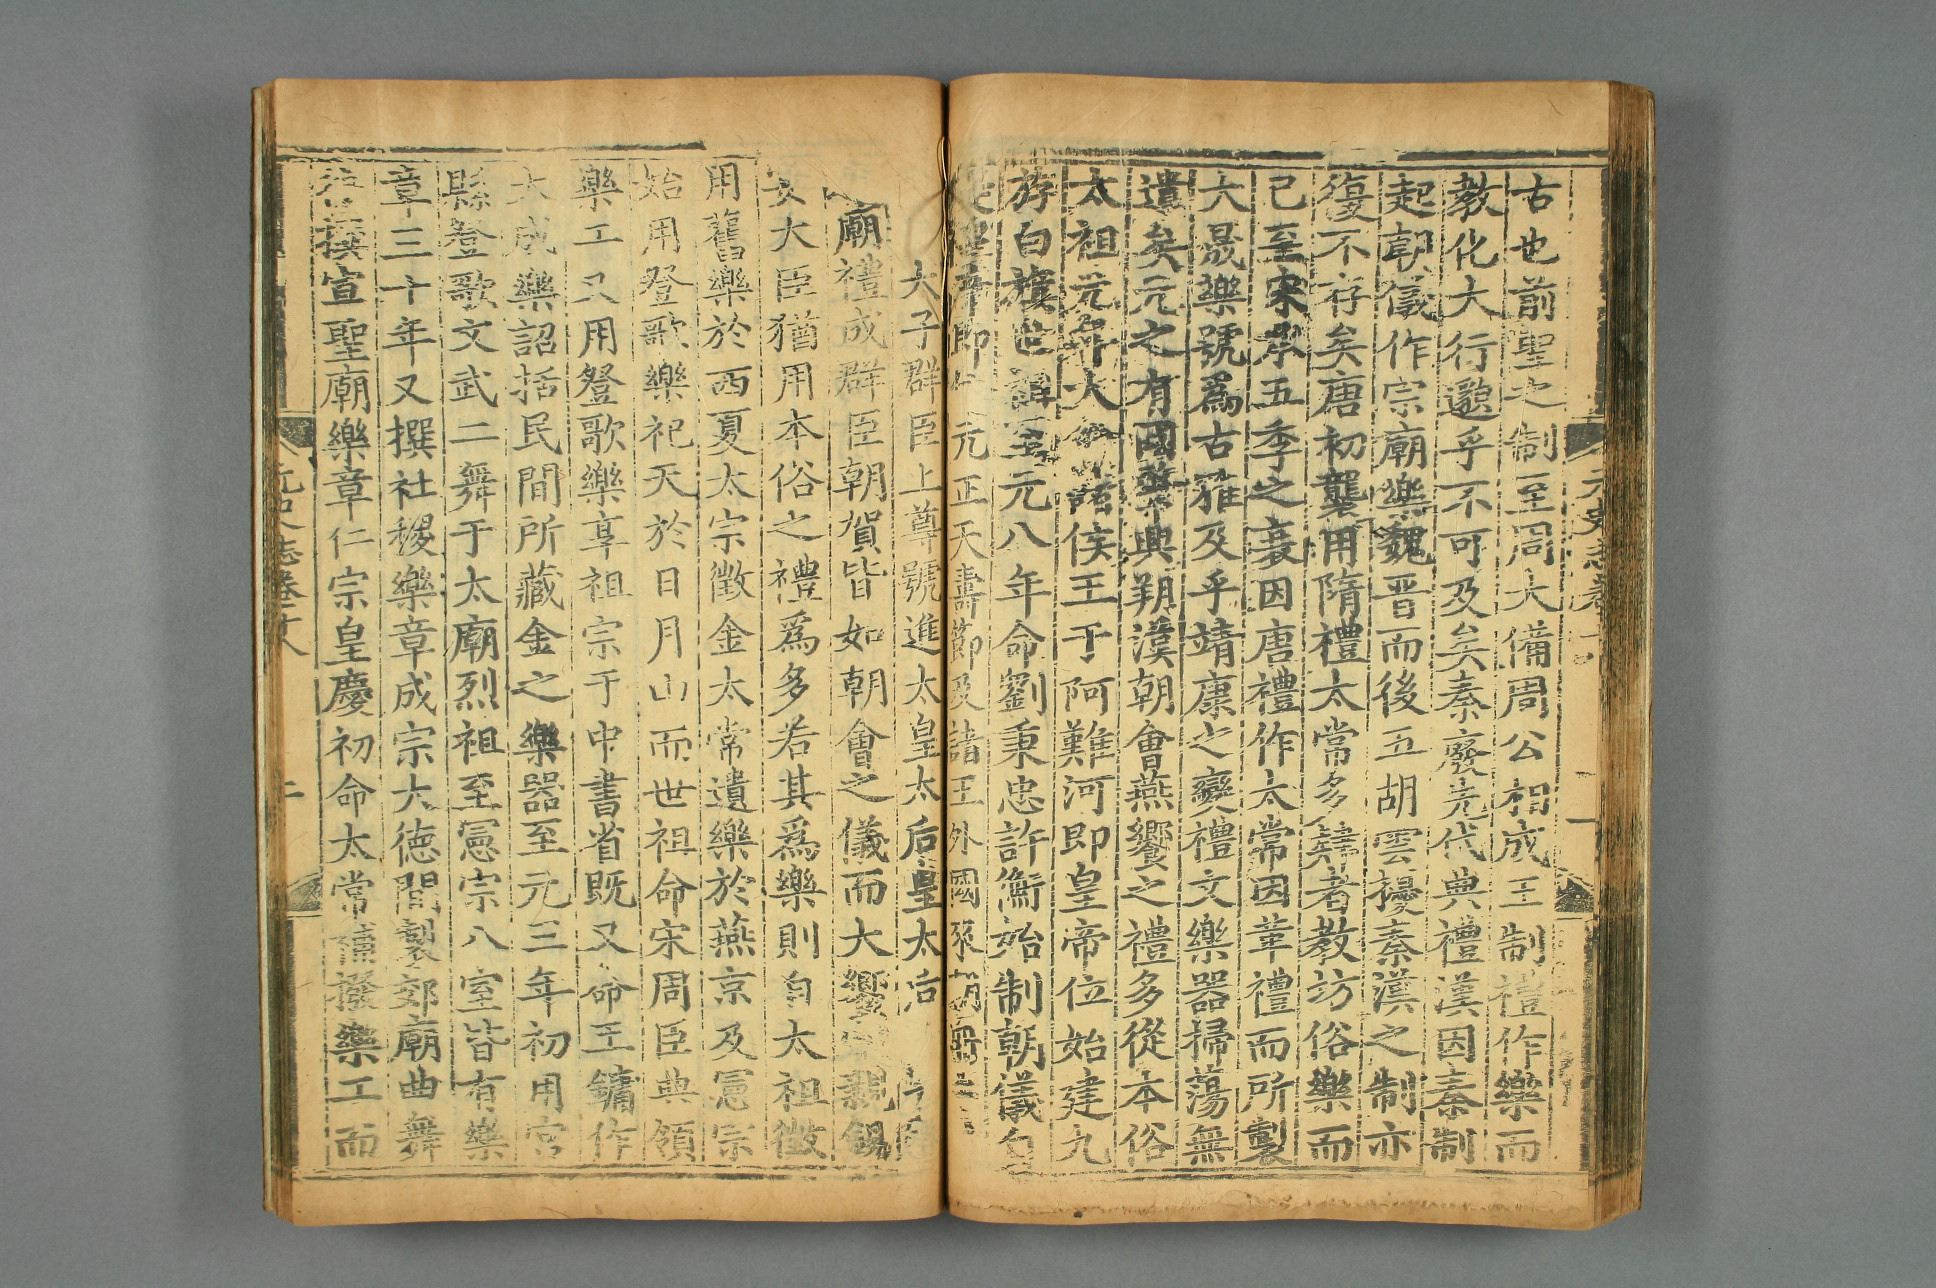 古也前聖之制至周大備周公相成王制禮作樂而
教化大行邈乎不可及矣秦廢先代典禮漢因秦制
起朝儀作宗廟樂魏晋而後五胡雲擾秦漢之制亦
復不存矣唐初襲用隋禮太常多肄者教坊俗樂而
已至宋承五季之衰因唐禮作太常因革禮而所製
大晟樂號爲古雅及乎靖康之變禮文樂器掃蕩無
遺矣元之有國肇興朔漠朝會燕饗之禮多從本俗
太祖元年大會諸侯王于阿難河即皇帝位始建九
斿白旗世祖至元八年命劉秉忠許衡始制朝儀自
是皇帝即位元正天壽節及諸王外國來朝冊立皇
太子群臣上尊號進太皇太后皇太后
廟禮成群臣朝賀皆如朝會之儀而大饗宗親錫
宴大臣猶用本俗之禮爲多若其爲樂則自太祖徵
用舊樂於西夏太宗徵金太常遺樂於燕京及憲宗
始用登歌樂祀天於日月山而世祖命宋周臣典領
樂工又用登歌樂享祖宗于中書省既又命王鏞作
大成樂詔括民間所藏金之樂器至元三年初用宮
縣登歌文武二舞于太廟烈祖至憲宗八室皆有樂
章三十年又撰社稷樂章成宗大德間製郊廟曲舞
復撰宣聖廟樂章仁宗皇慶初命太常補撥樂工而
元史志卷十八
二